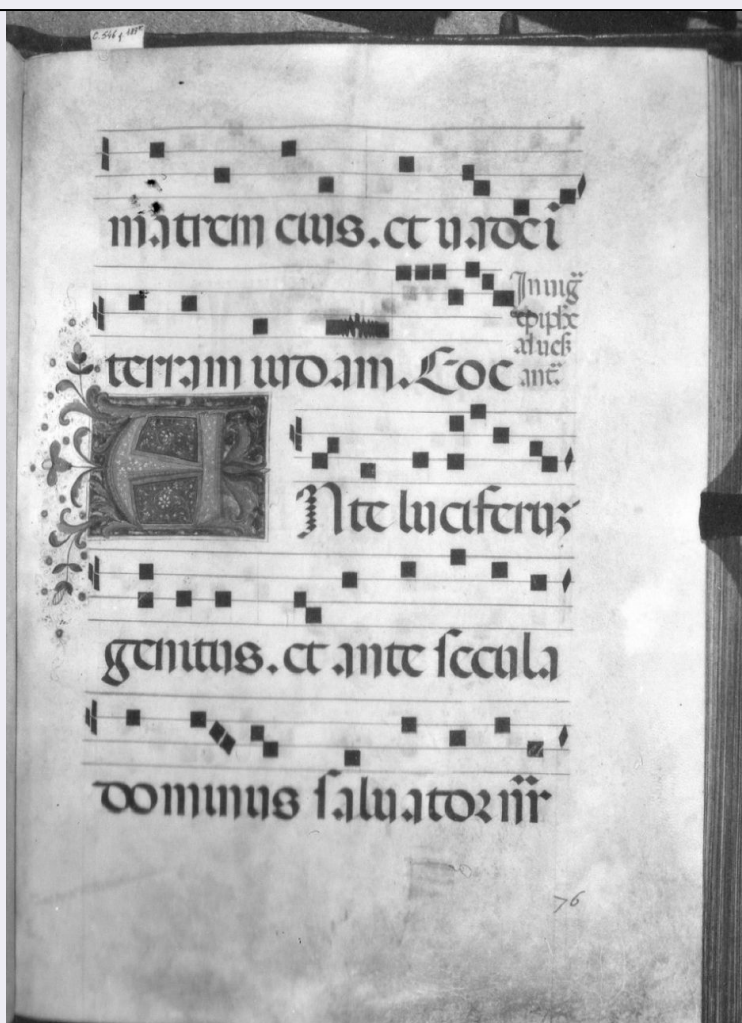 matrem eius. et uade i
terram iudam. Eoe
In uig
epiphe
ad uesꝑ
ant.
Ante luciferuꝫ
genitus. et ante secula
dominus saluator nr̄
76